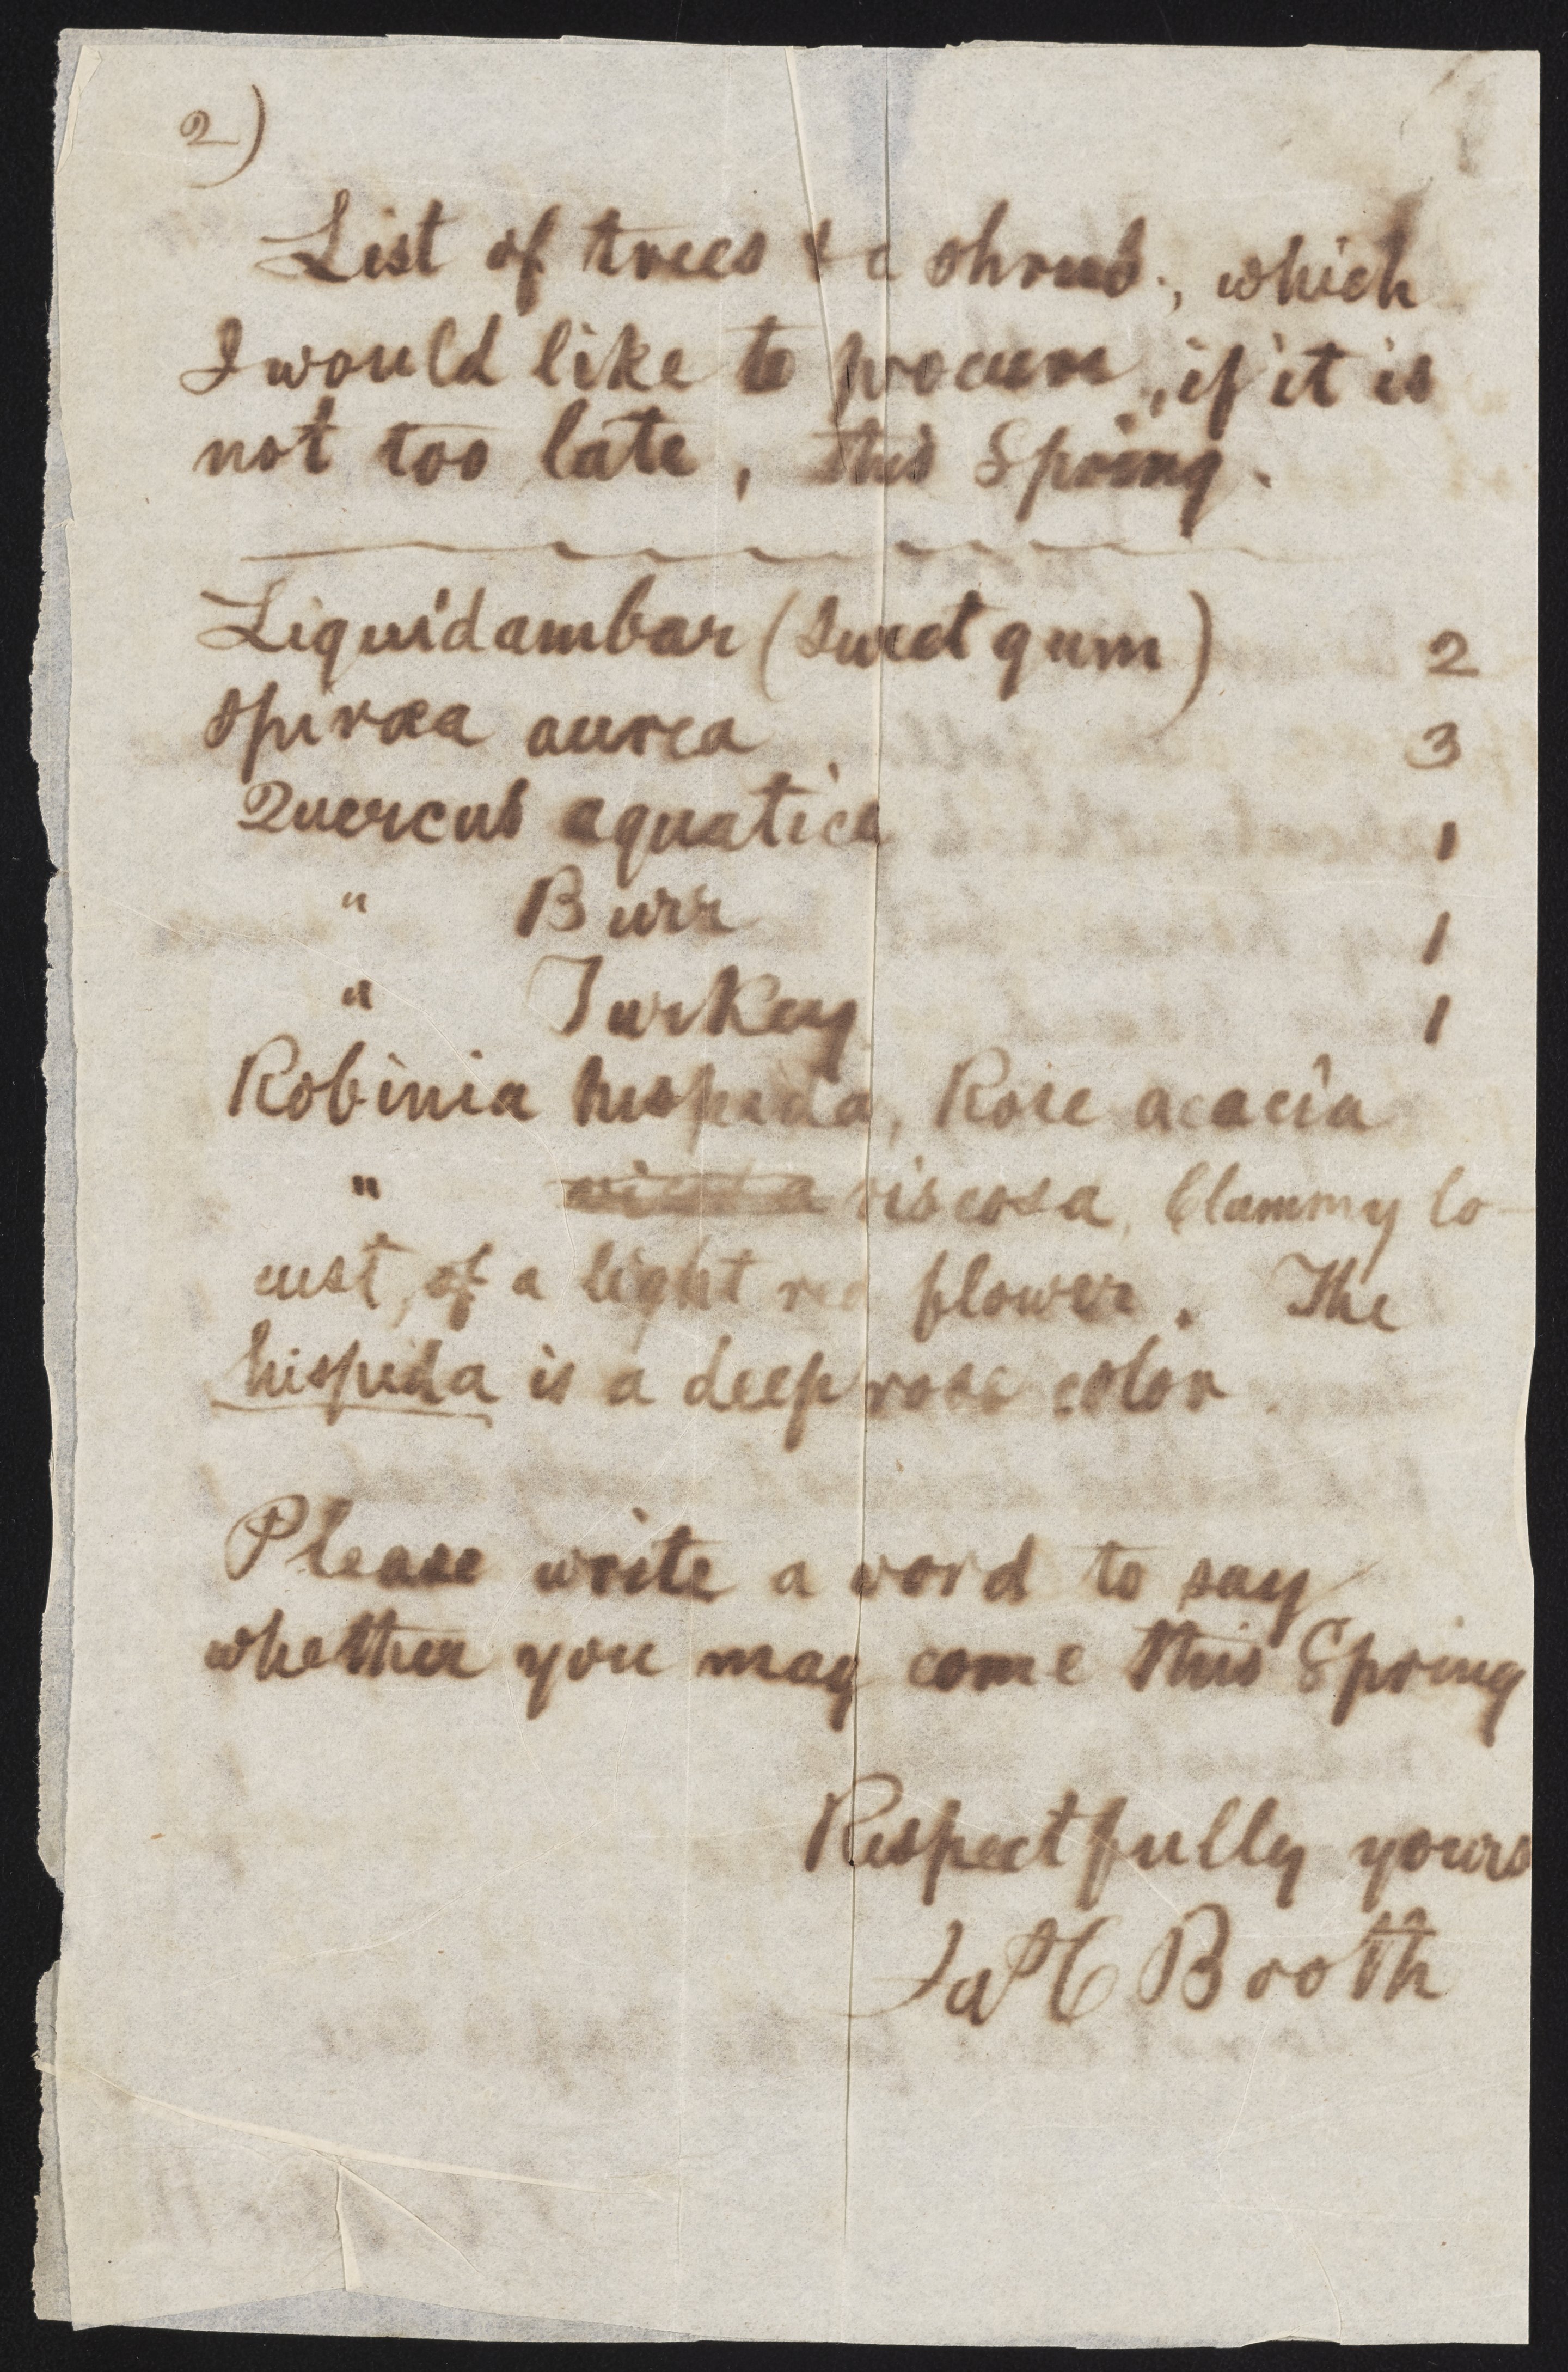 2)
List of trees & a shrub, which
I would like to procure, if it is
not too late, this Spring.
Liquidambar (Sweet gum) 2
Spiræa aurea 3
Quercus aquatica 1
" Burr 1
" Turkey 1
Robinia hispida, Rose acacia
" viscosa, Clammy lo-
cust, of a light red flower. The
hispida is a deep rose color.
Please write a word to say
whether you may come this Spring
Respectfully yours
Jas C Booth